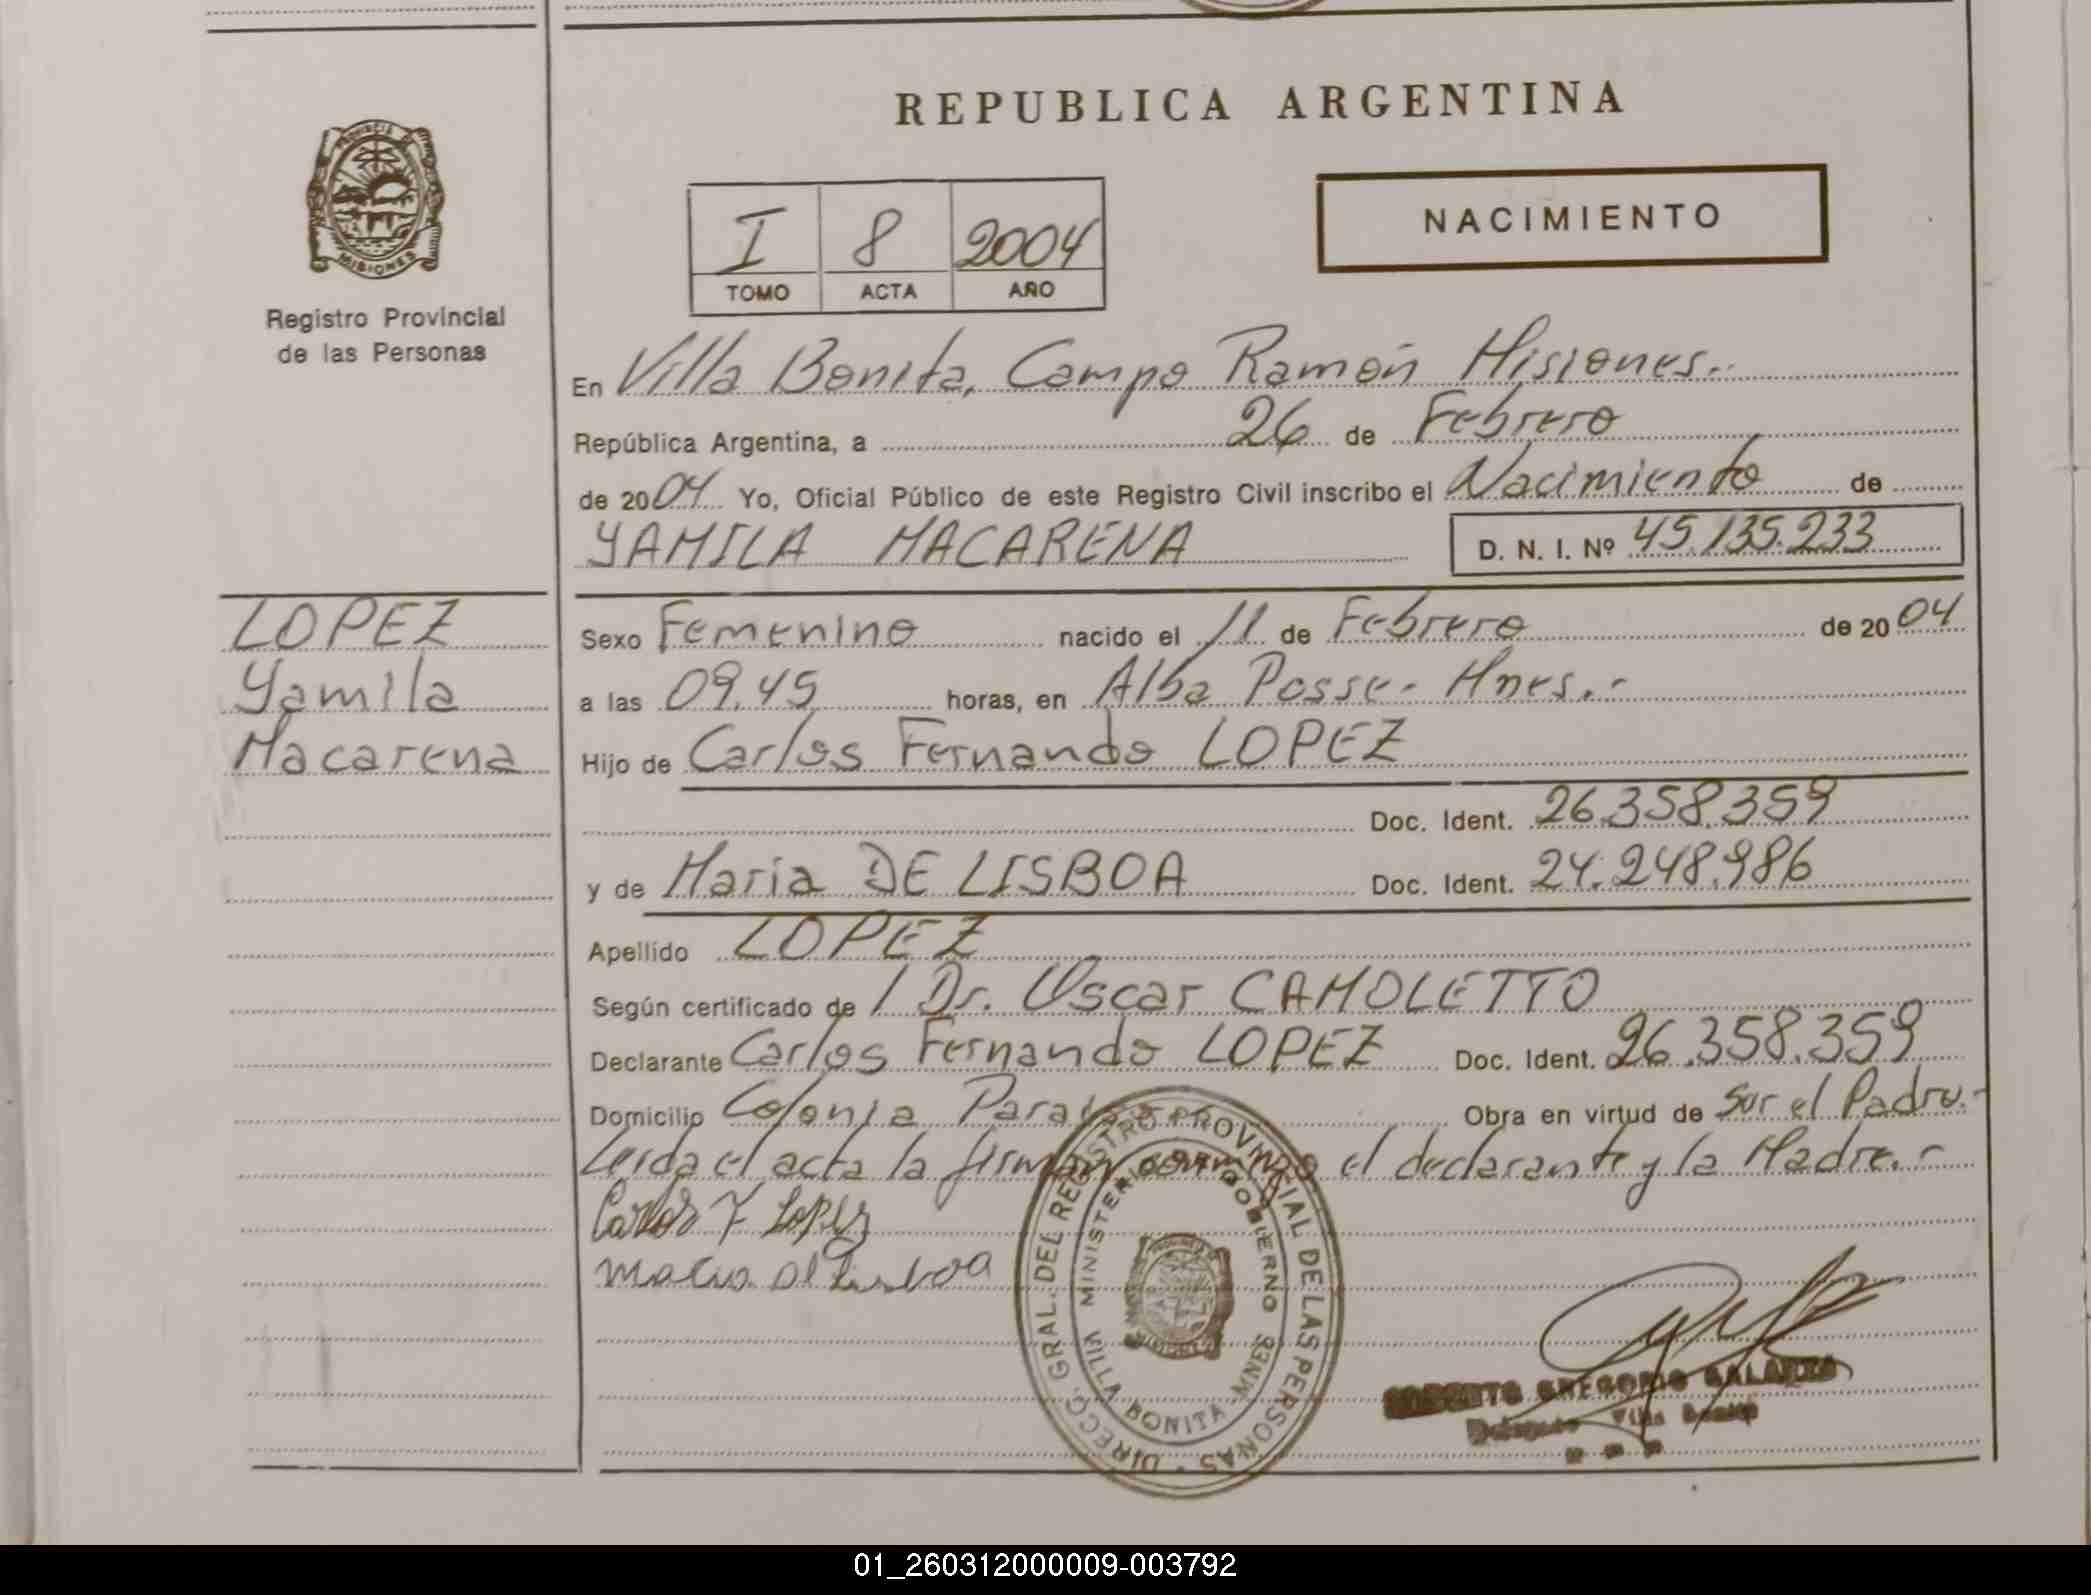 REPUBLICA ARGENTINA
PROVINCIA
MISIONES
Registro Provincial
de las Personas
I 8 2004
TOMO ACTA AÑO
NACIMIENTO
En Villa Bonita, Campo Ramón Misiones.-
República Argentina, a 26 de Febrero
de 2004 Yo, Oficial Público de este Registro Civil inscribo el Nacimiento de
YAMILA MACARENA D. N. I. Nº 45.135.233
LOPEZ
Yamila
Macarena
Sexo Femenino nacido el 11 de Febrero de 2004
a las 09.45 horas, en Alba Posse- Mnes.-
Hijo de Carlos Fernando LOPEZ
Doc. Ident. 26.358.359
y de Maria DE LISBOA Doc. Ident. 24.248.986
Apellido LOPEZ
Según certificado de / Dr. Oscar CAMOLETTO
Declarante Carlos Fernando LOPEZ Doc. Ident. 26.358.359
Domicilio Colonia Obra en virtud de Ser el Padre.-
Leida el acta la firman conmigo el declarante y la Madre.-
Carlos F Lopez
Maria de Lisboa
DIRECC. GRAL. DEL REGISTRO PROVINCIAL DE LAS PERSONAS
MINISTERIO DE GOBIERNO
VILLA BONITA MNES
GREGORIO GALARZA
Villa Bonita
01_260312000009-003792